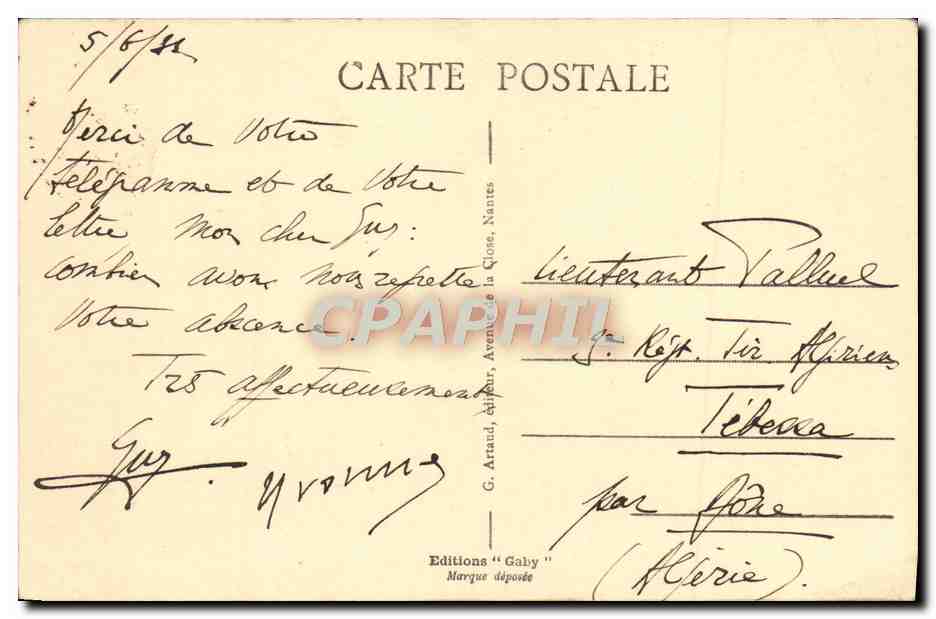 5/6/32
CARTE POSTALE
Merci de Votre
télégramme et de Votre
lettre mon cher Guy :
combien avons nous regretté
Votre absence.
Très affectueusement
Guy. Yvonne
G. Artaud, éditeur, Avenue de la Close, Nantes
Editions "Gaby"
Marque déposée
Lieutenant Palluel
9e Régt. Tir. Algériens
Tébessa
par Bône
(Algérie).
CPAPHIL